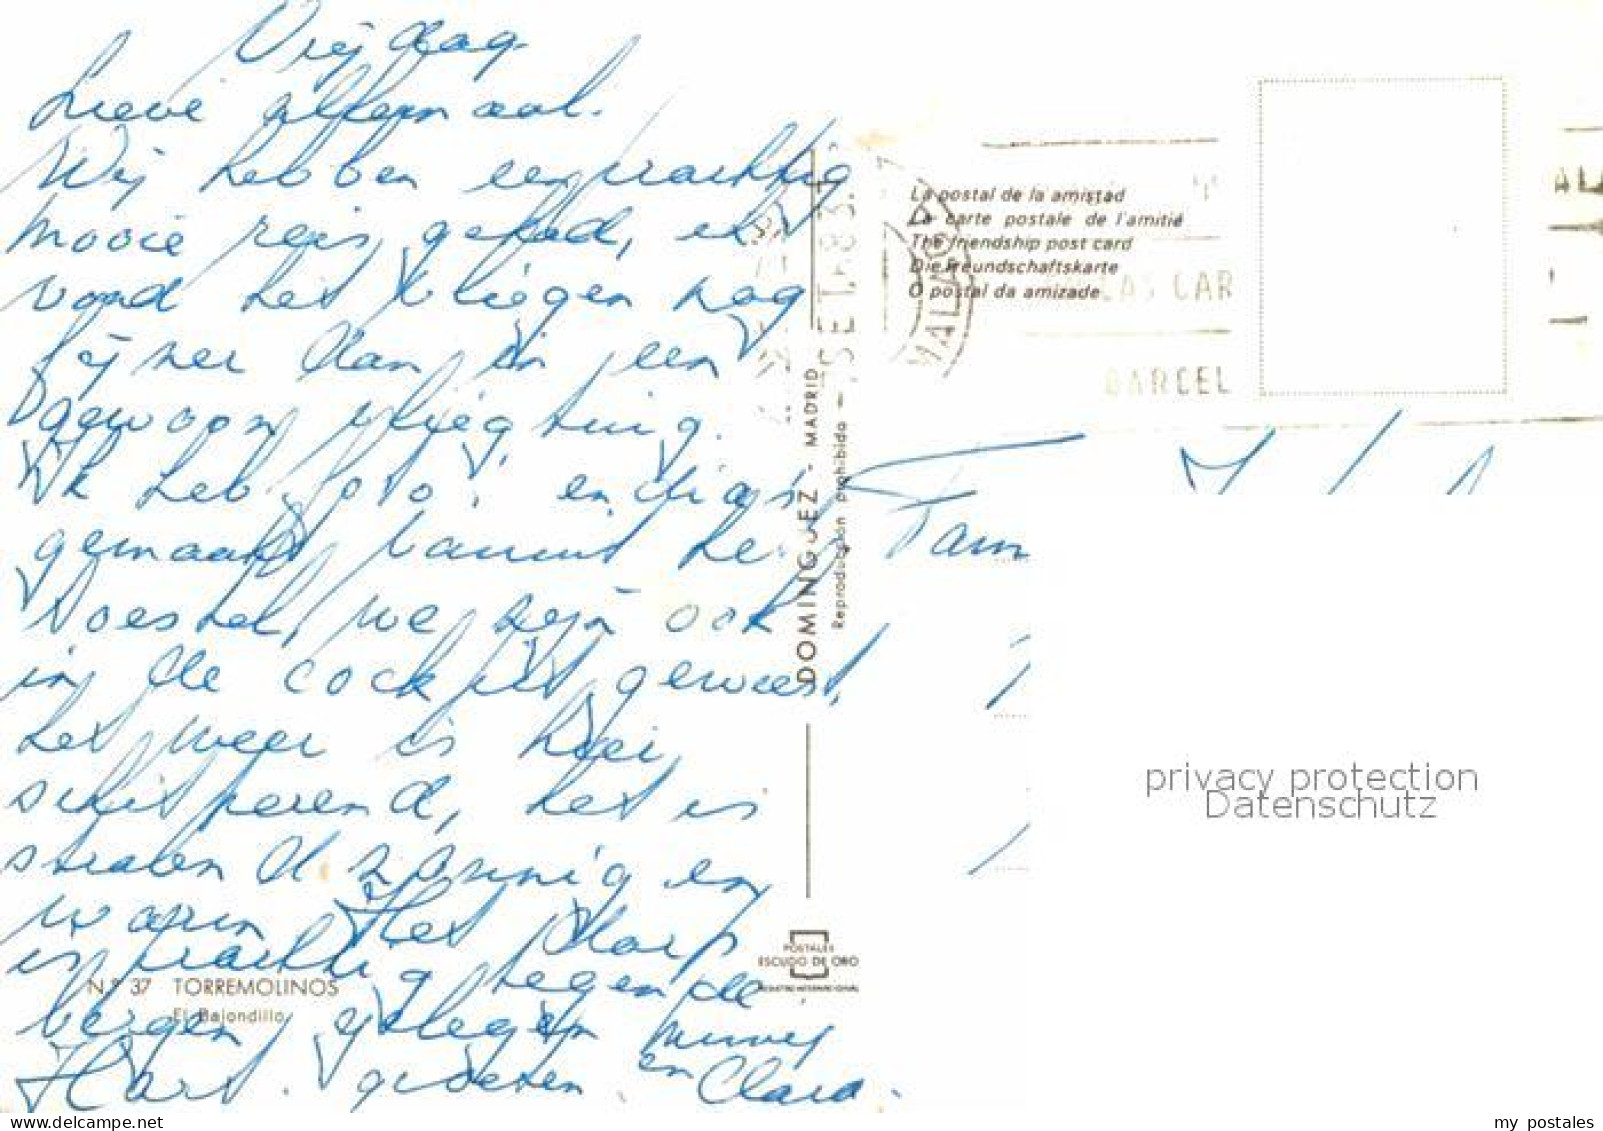 Vrijdag.
Lieve allemaal.
Wij hebben een prachtig
mooie reis gehad, ik
vond het vliegen nog
fijner dan in een
gewoon vliegtuig.
Ik heb foto's en dia's
gemaakt vanuit het
toestel, we zijn ook
in de cockpit geweest,
het weer is hier
schitterend, het is
stralend zonnig en
warm Het dorp
is prachtig tegen de
bergen gelegen
Hart. groeten. en Clara.
Nº 37 TORREMOLINOS
El Bajondillo
DOMINGUEZ - MADRID
Reproducción prohibida
POSTALES
ESCUDO DE ORO
La postal de la amistad
La carte postale de l'amitié
The friendship post card
Die Freundschaftskarte
O postal da amizade
MALAGA
SET. 83
LAS CAR
BARCEL
Fam
privacy protection
Datenschutz
my postales